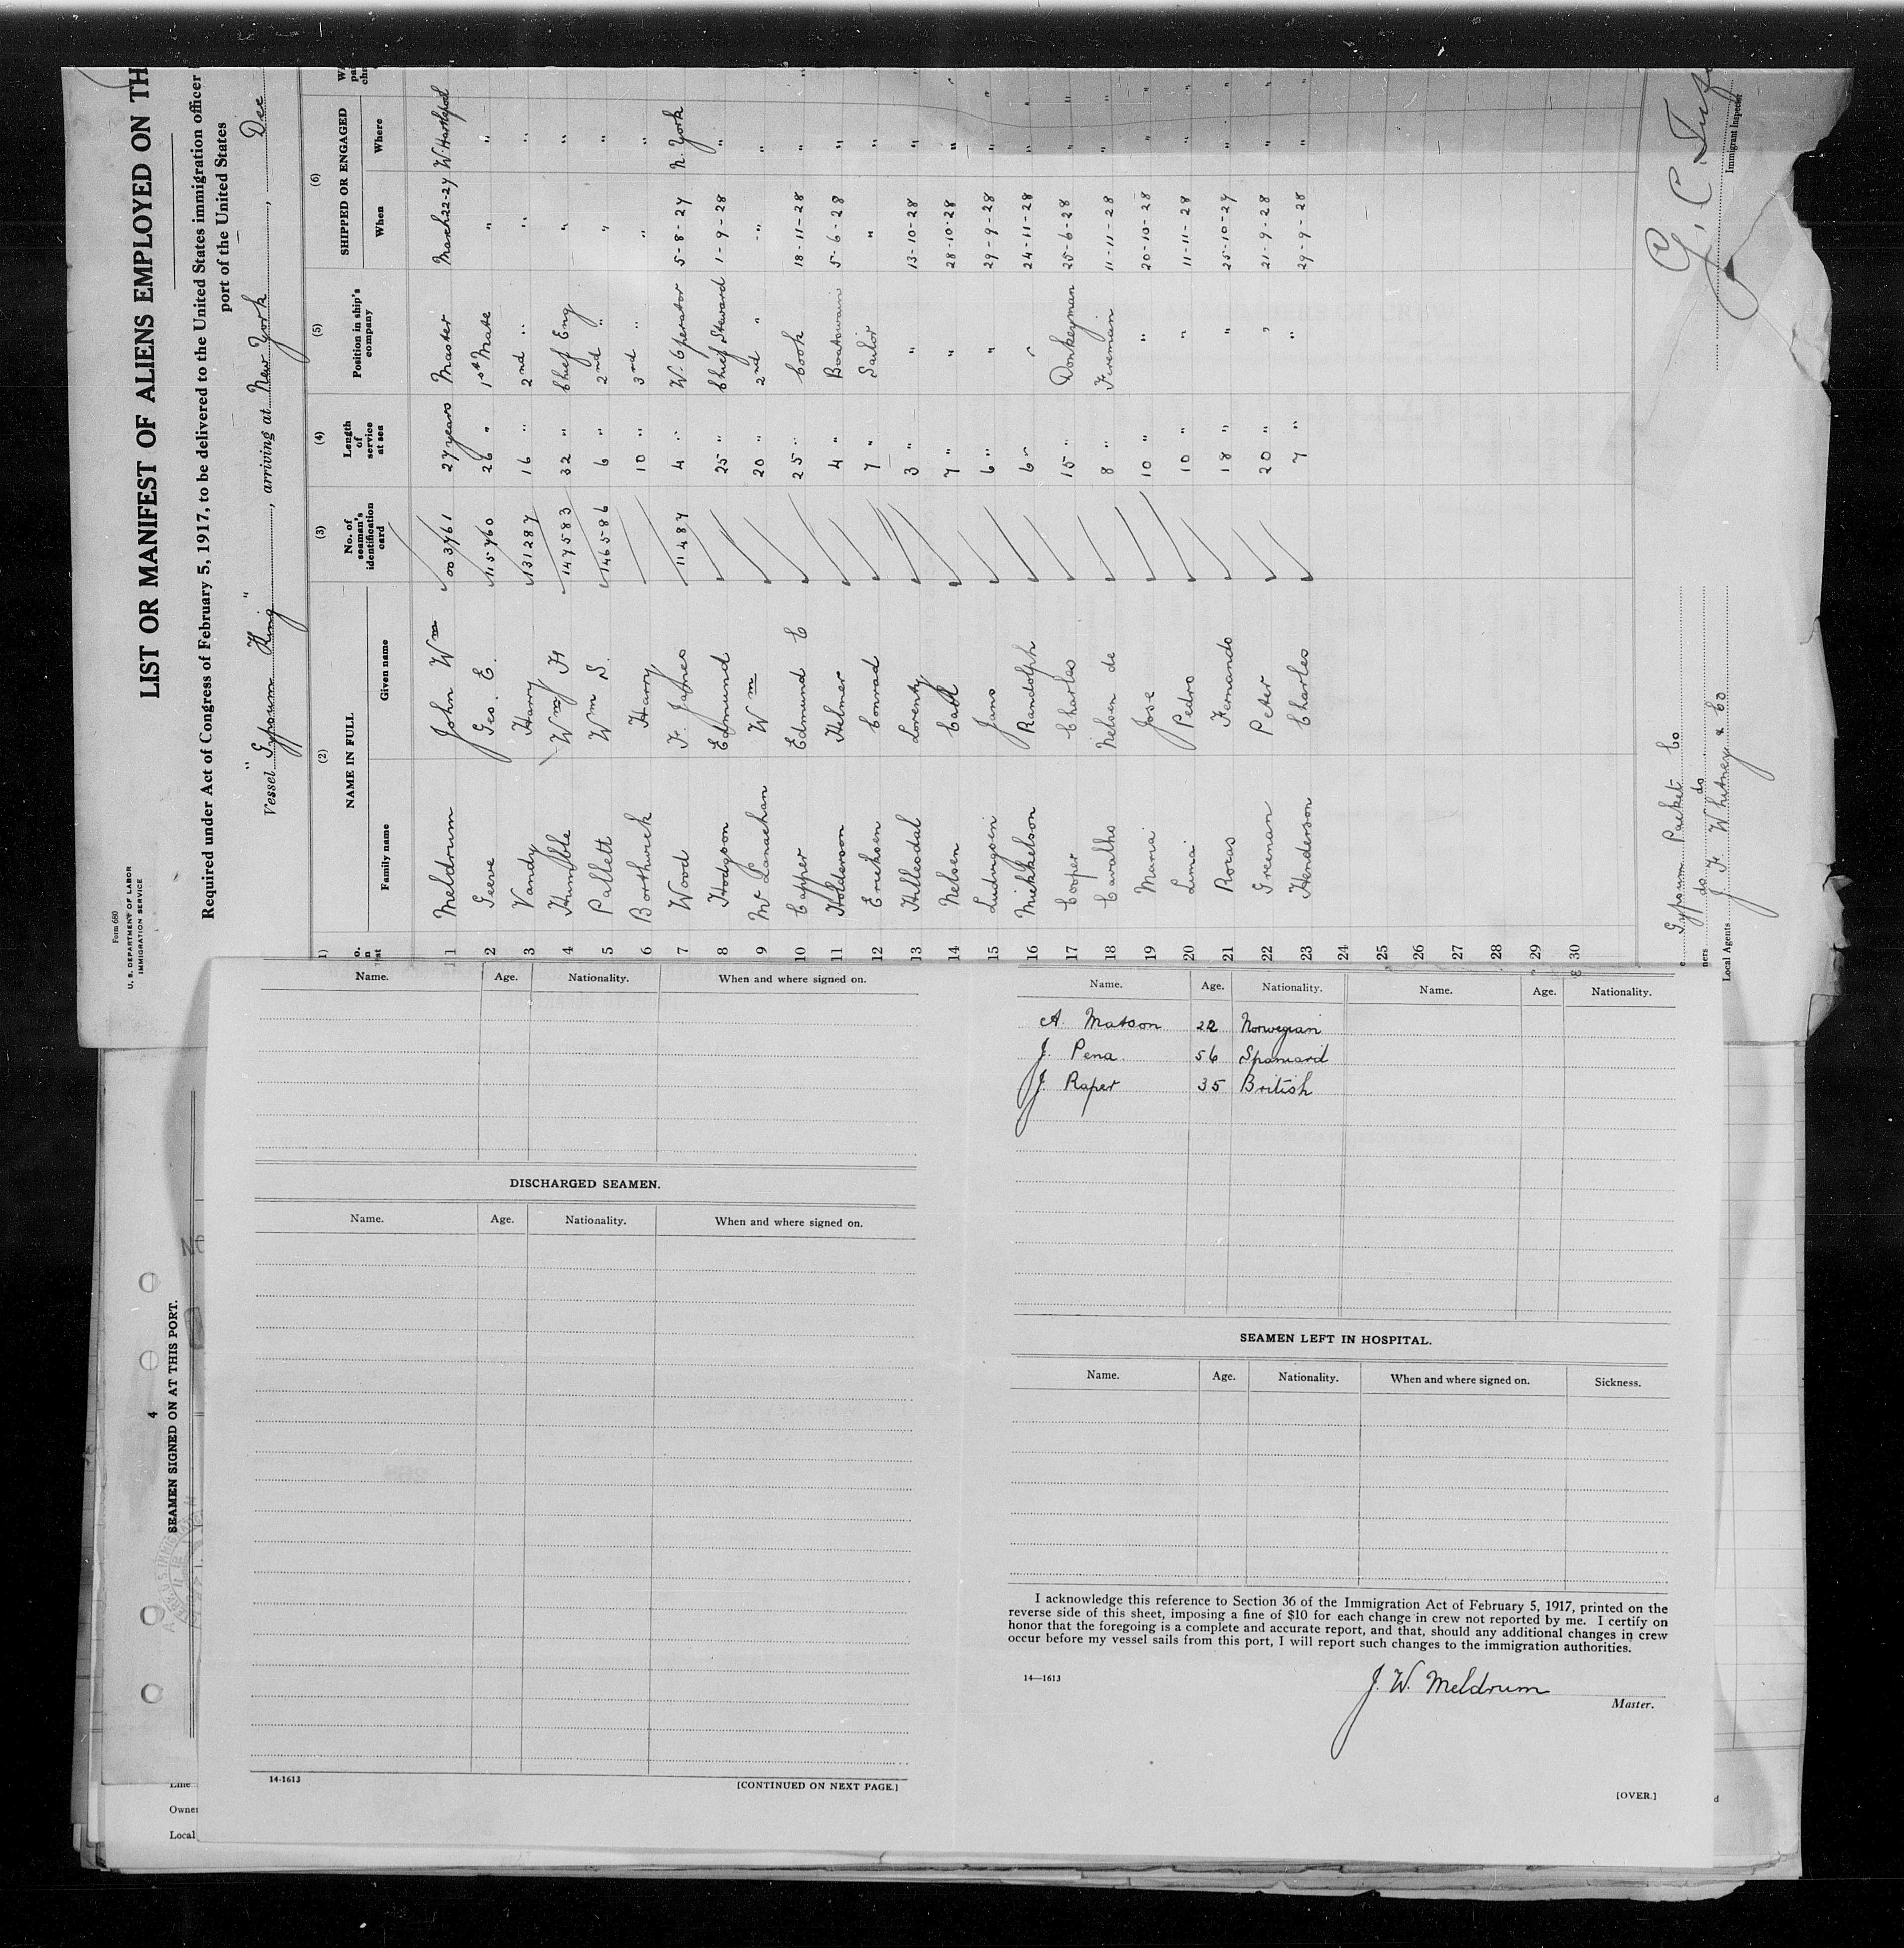 Form 680
U. S. DEPARTMENT OF LABOR
IMMIGRATION SERVICE
LIST OR MANIFEST OF ALIENS EMPLOYED ON TH
Required under Act of Congress of February 5, 1917, to be delivered to the United States immigration officer
port of the United States
Vessel "Gypsum King", arriving at New York, Dec
(2) (3) (4) (5) (6)
NAME IN FULL No. of seaman's identification card Length of service at sea Position in ship's company SHIPPED OR ENGAGED
Family name Given name When Where
1 Meldrum John Wm 003761 27 years Master March 22-27 W. Hartlepool
2 Geeve Geo. E. 115760 26 " 1st Mate " "
3 Vandy Harry 131287 16 " 2nd " " "
4 Humble Wm H 147583 32 " Chief Eng " "
5 Pallett Wm S. 146586 6 " 2nd " " "
6 Borthwick Harry 10 " 3rd " " "
7 Wood F. James 11487 4 " W. Operator 5-8-27 N. York
8 Hodgson Edmund 25 " Chief Steward 1-9-28 "
9 Mc Lanachan Wm 20 " 2nd " " "
10 Capper Edmund C 25 " Cook 18-11-28 "
11 Holdarson Helmer 4 " Boatswain 5-6-28 "
12 Ericksen Conrad 7 " Sailor " "
13 Hillesdal Lorentz 3 " " 13-10-28 "
14 Nelsen Carl 7 " " 28-10-28 "
15 Ludvigsen Jans 6 " " 29-9-28 "
16 Mikkelson Randolph 6 " " 24-11-28 "
17 Cooper Charles 15 " Donkeyman 25-6-28 "
18 Carvalho Nelson de 8 " Fireman 11-11-28 "
19 Maria Jose 10 " " 20-10-28 "
20 Lima Pedro 10 " " 11-11-28 "
21 Rocas Fernando 18 " " 25-10-27 "
22 Greenan Peter 20 " " 21-9-28 "
23 Henderson Charles 7 " " 29-9-28 "
24
25
26
27
28
29
30
Gypsum Packet Co
ners do do
Local Agents J F Whitney & Co
Immigrant Inspector
Name. Age. Nationality. When and where signed on.
DISCHARGED SEAMEN.
Name. Age. Nationality. When and where signed on.
14-1613
[CONTINUED ON NEXT PAGE.]
Name. Age. Nationality. Name. Age. Nationality.
A. Matson 22 Norwegian
J. Pena 56 Spaniard
J. Raper 35 British
SEAMEN LEFT IN HOSPITAL.
Name. Age. Nationality. When and where signed on. Sickness.
I acknowledge this reference to Section 36 of the Immigration Act of February 5, 1917, printed on the
reverse side of this sheet, imposing a fine of $10 for each change in crew not reported by me. I certify on
honor that the foregoing is a complete and accurate report, and that, should any additional changes in crew
occur before my vessel sails from this port, I will report such changes to the immigration authorities.
14—1613
J. W. Meldrum
Master.
[OVER.]
4
SEAMEN SIGNED ON AT THIS PORT.
Line
Owner
Local